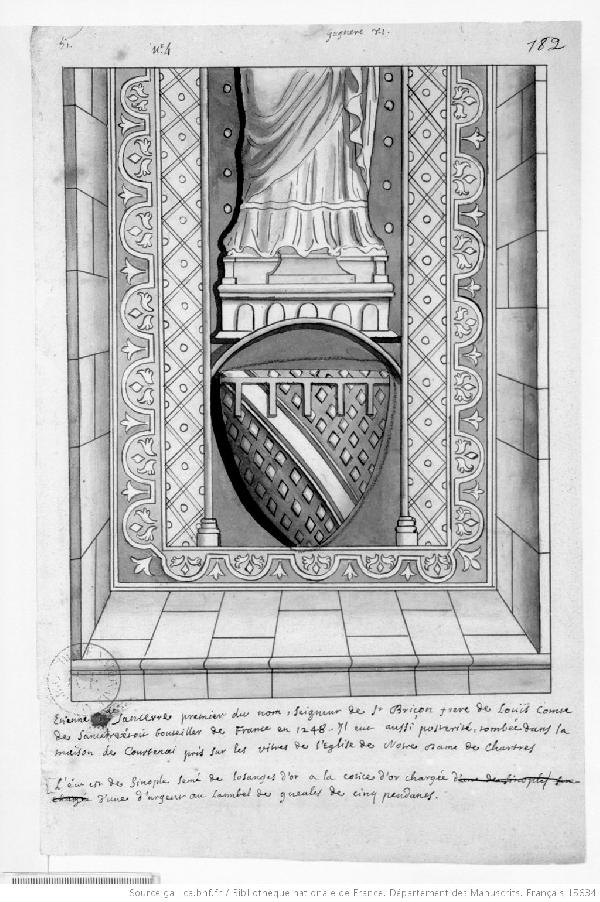 gagniere 71.
N.º 4
182
Etienne de Sancerre premier du nom, Seigneur de St Briçon frere de Louis Comte
de Sancerre bouteiller de France en 1248. Il eut aussi posterité, tombée dans la
maison de Courtenai pris sur les vitres de l'eglise de Notre dame de Chartres
L'écu est de Sinople semé de losanges d'or a la cotice d'or chargée
d'une d'argent au Lambel de gueules de cinq pendans.
Source gallica.bnf.fr / Bibliothèque nationale de France. Département des Manuscrits. Français 15634